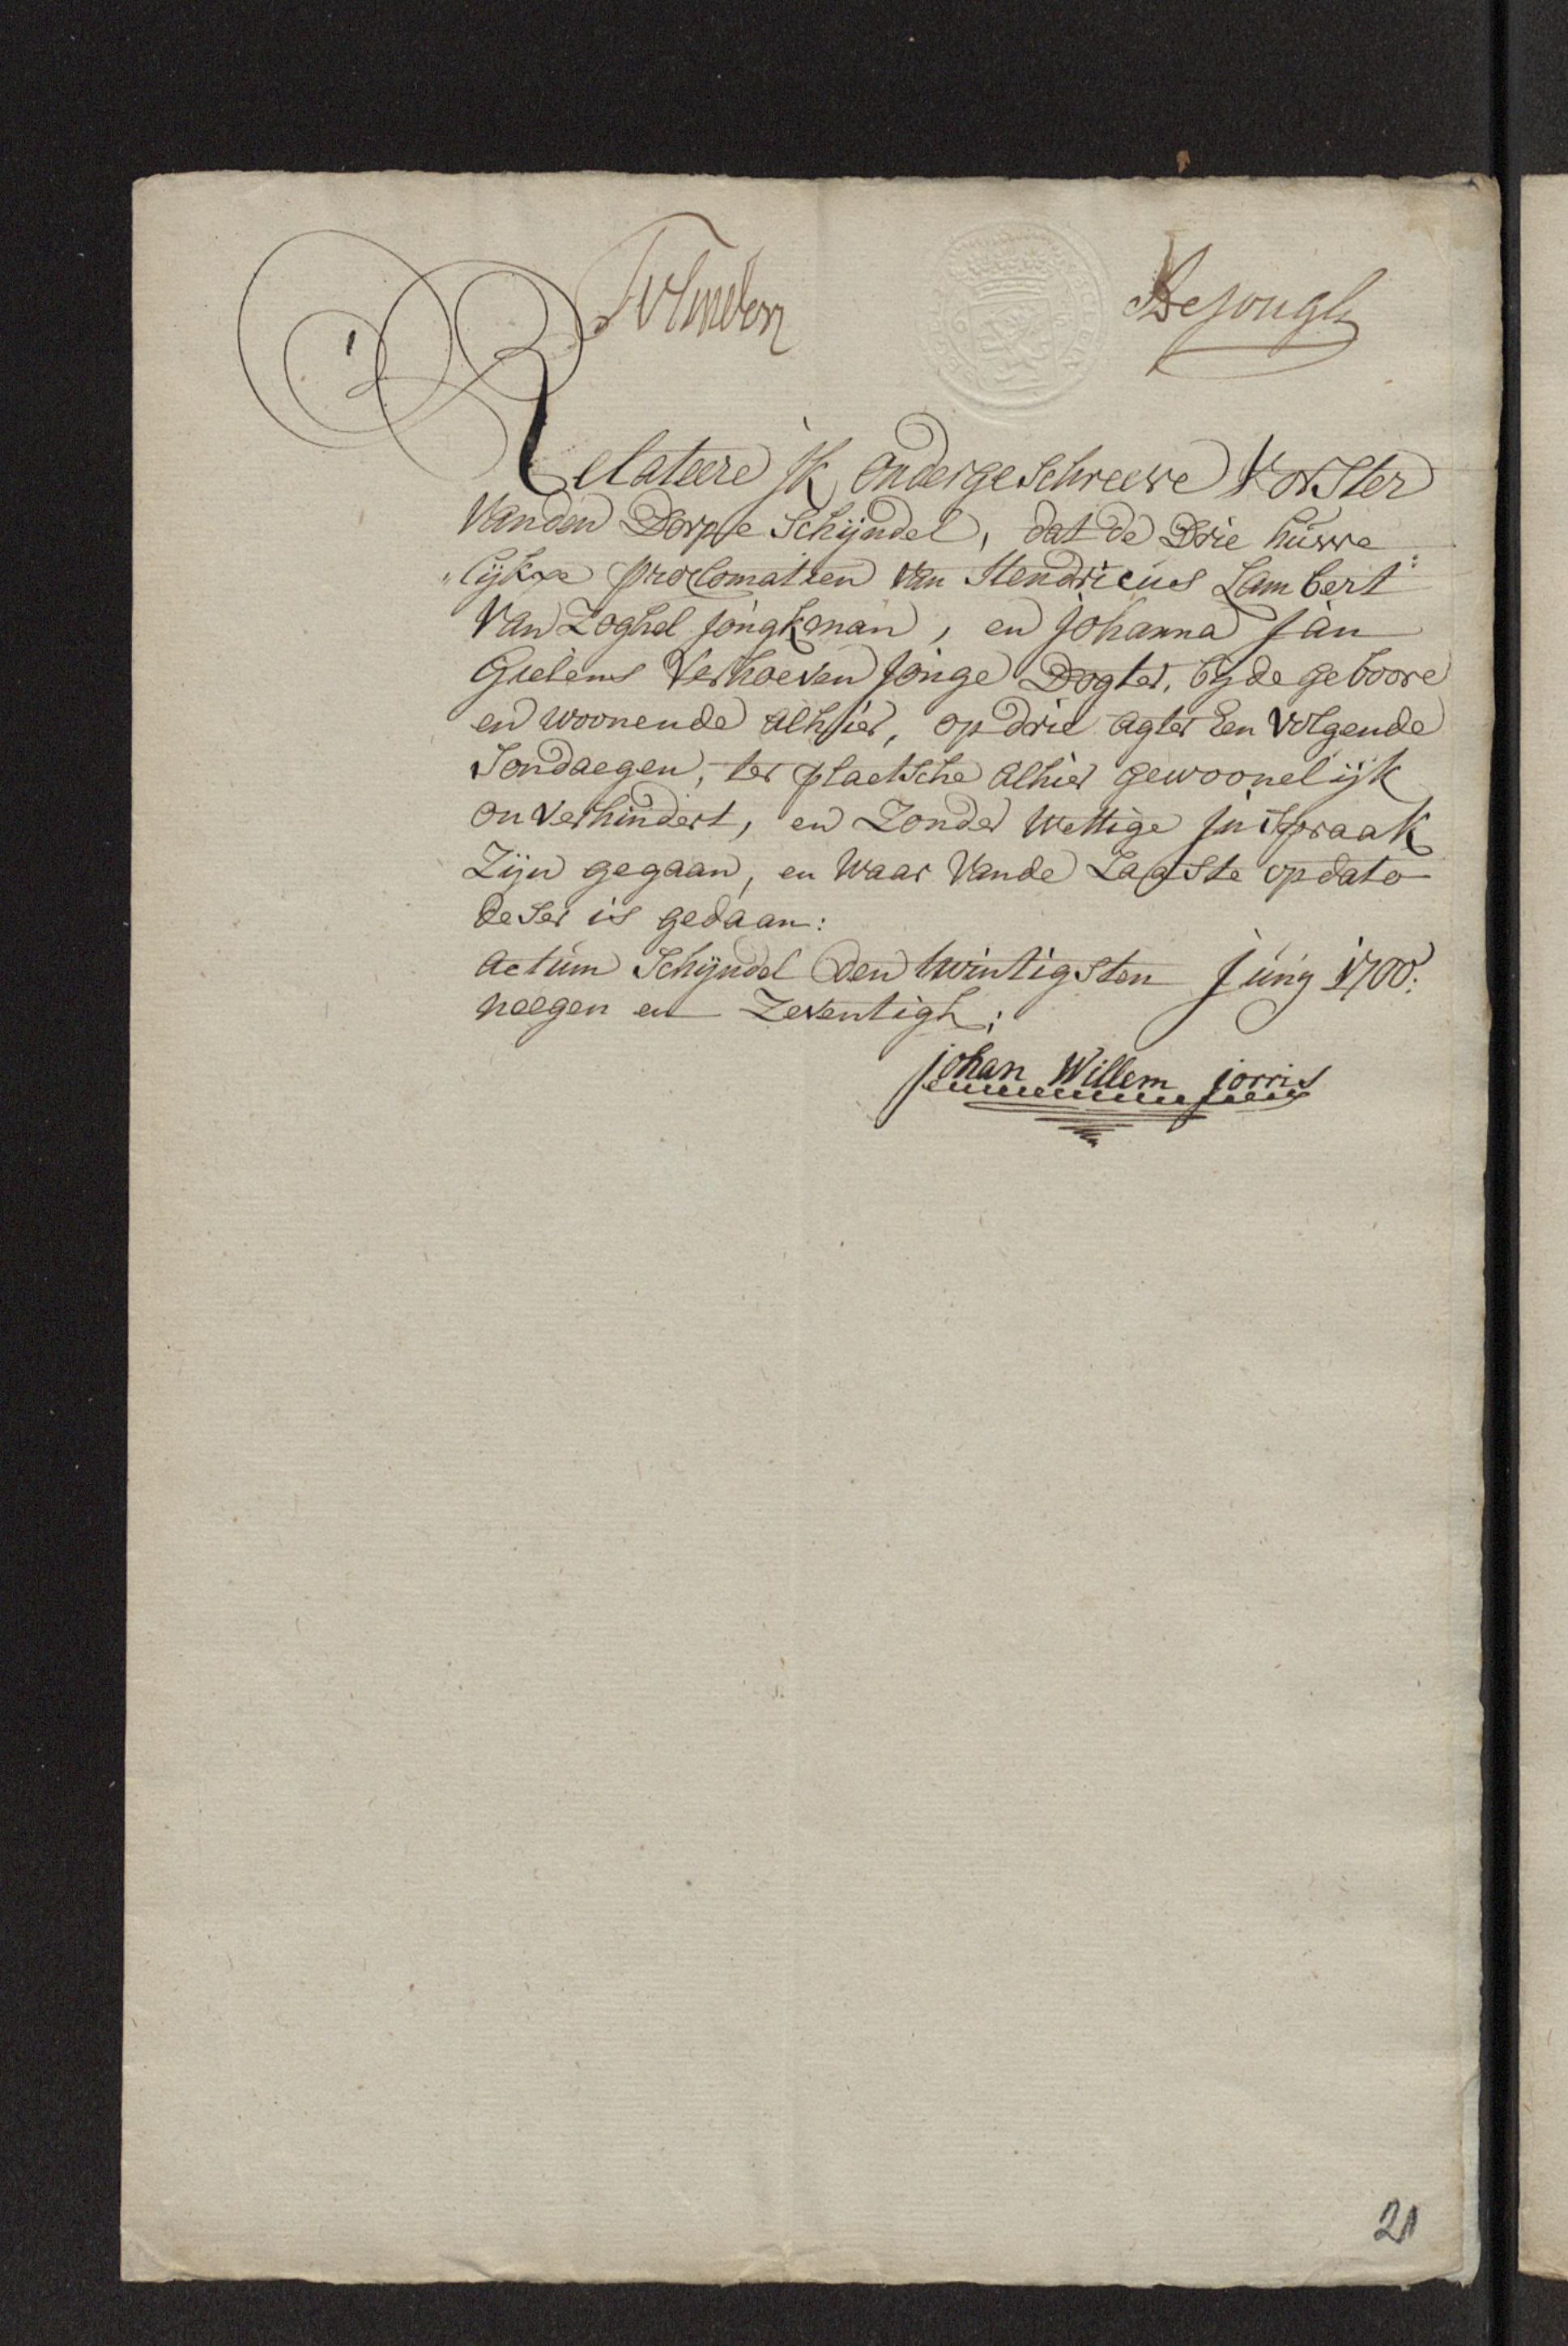 DeJongh
Relateere jk ondergeschreeve Vorster
van den Dorpe Schijndel, dat de Drie huwe
"lijkxe proclomatien van Hendricus Lambert
van Zoghel jongkman, en Johanna Jan
Gielens Verhoeven Jonge Dogter, byde geboore
en woonende alhier, op drie agter Een volgende
Sondaegen, ter plaetsche alhier gewoonelijk
on verhindert, en Zonder Wettige jn spraak
Zijn gegaan, en waar van de Laaste op dato
deser is gedaan:
actum Schijndel den twintigsten Juny 1700:
neegen en Zeventigh;
johan Willem jorris
21